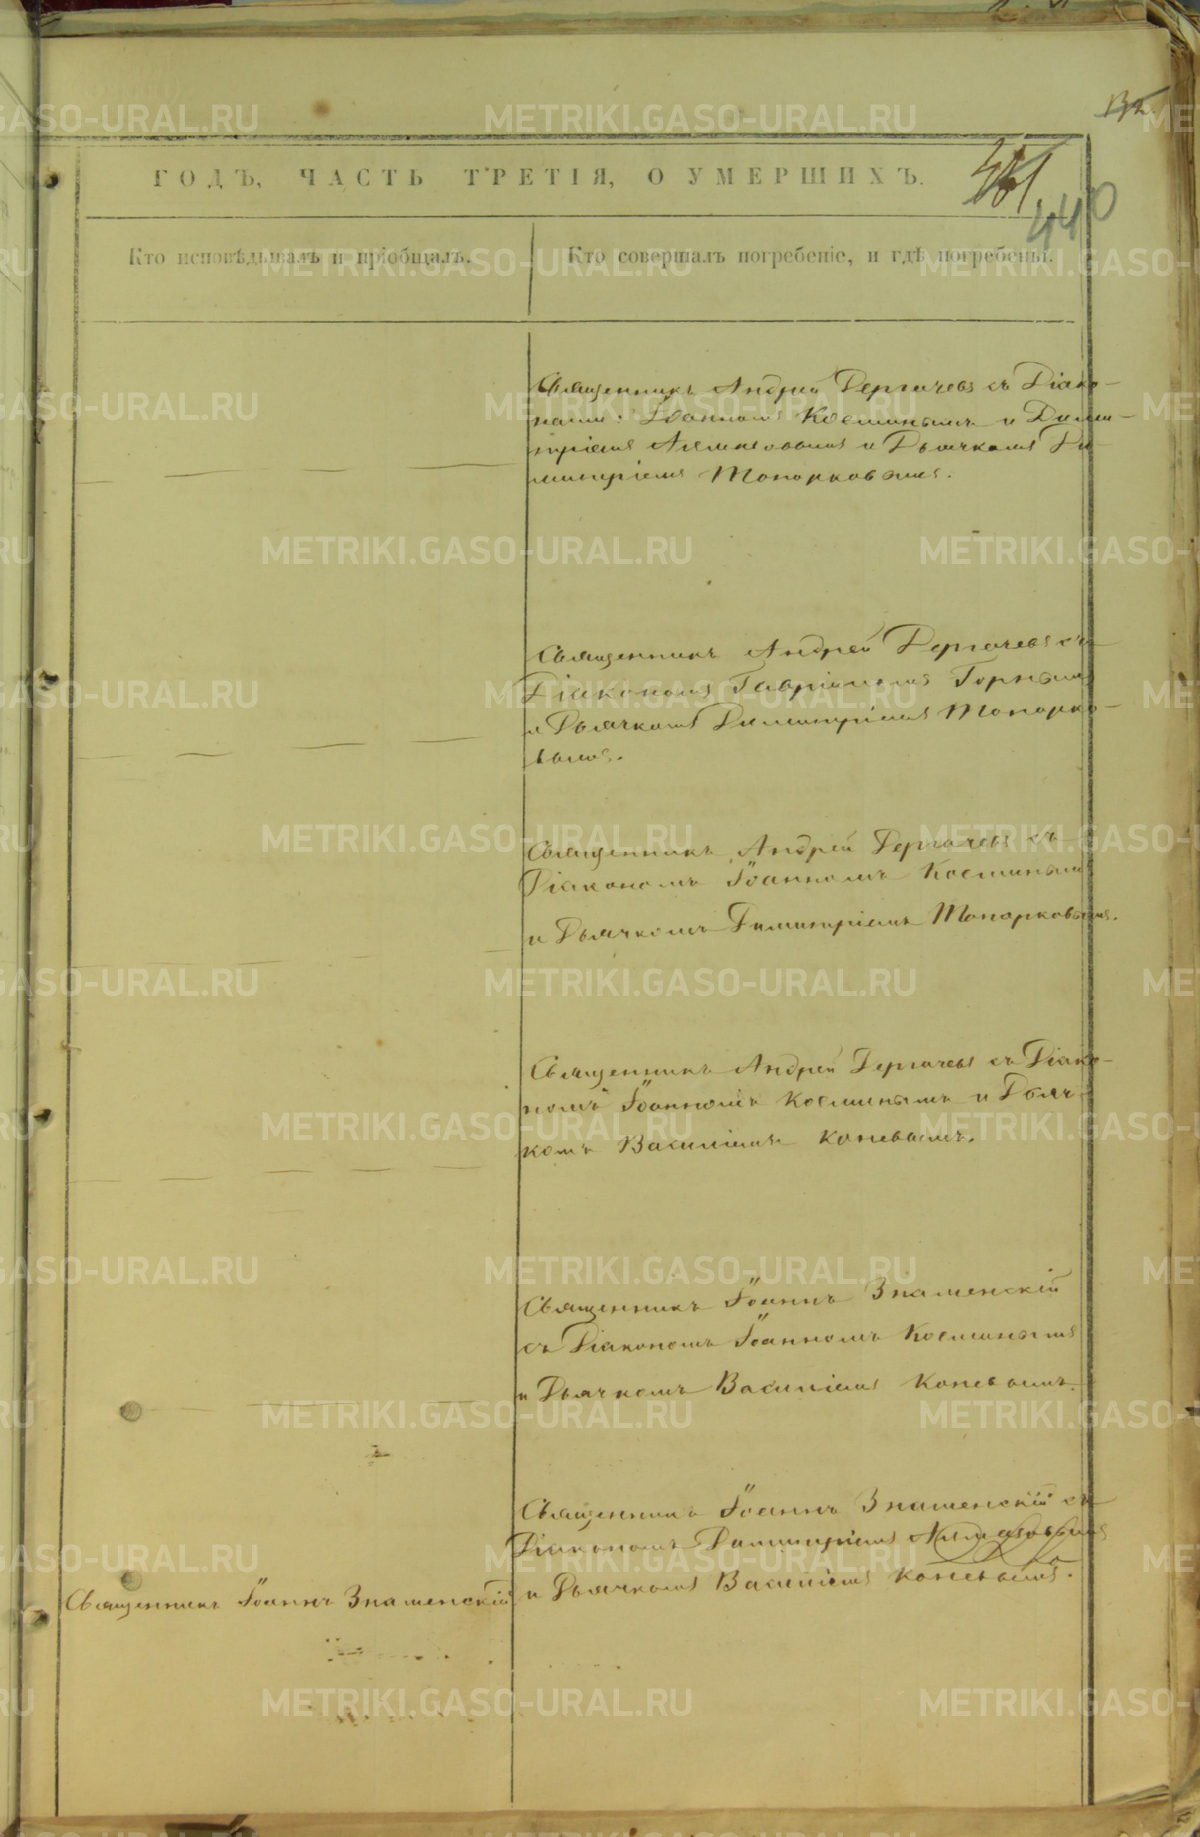 ГОДЪ, ЧАСТЬ ТРЕТІЯ, О УМЕРШИХЪ.
440
Кто исповѣдывалъ и пріобщалъ.
Кто совершалъ погребеніе, и гдѣ погребены.
Священникъ Андрей Дергачевъ съ Діако-
нами: Іоанномъ Косминымъ и Дими-
тріемъ Алмазовымъ и Дьячкомъ Ди
митріемъ Топорковымъ.
Священникъ Андрей Дергачевъ съ
Діакономъ Гавріиломъ Горнымъ
и Дьячкомъ Димитріемъ Топорко-
вымъ.
Священникъ Андрей Дергачевъ съ
Діакономъ Іоанномъ Косминымъ
и Дьячкомъ Димитріемъ Топорковымъ.
Священникъ Андрей Дергачевъ съ Діако-
номъ Іоанномъ Косминымъ и Дьяч-
комъ Василіемъ Коневымъ.
Священникъ Іоаннъ Знаменскій
съ Діакономъ Іоанномъ Косминымъ
и Дьячкомъ Василіемъ Коневымъ.
Священникъ Іоаннъ Знаменскій съ
Діакономъ Димитріемъ Алмазовымъ
и Дьячкомъ Василіемъ Коневымъ.
Священникъ Іоаннъ Знаменскій
METRIKI.GASO-URAL.RU